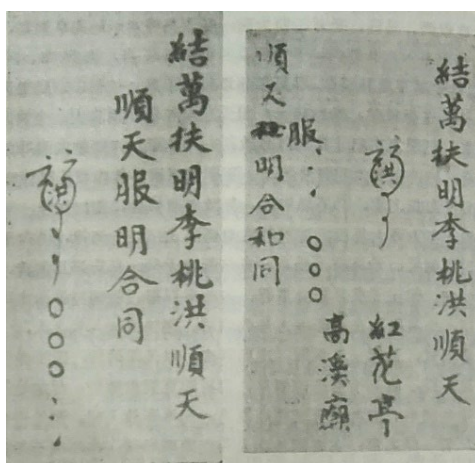 結萬扶明李桃洪順天
紅花亭
高溪廟
服、、○○○
順天明合和同
結萬扶明李桃洪順天
順天服明合同
○○○